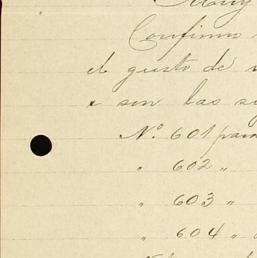 Muy
Confirmo
el gusto de
e son las
Nº 601 para
" 602 "
" 603 "
" 604 "